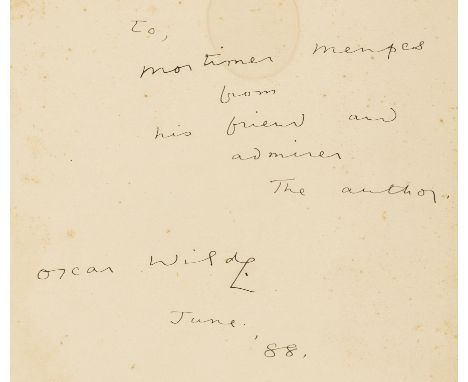 To,
Mortimer Menpes
from
his friend and
admirer
The author.
Oscar Wilde.
June.
'88.